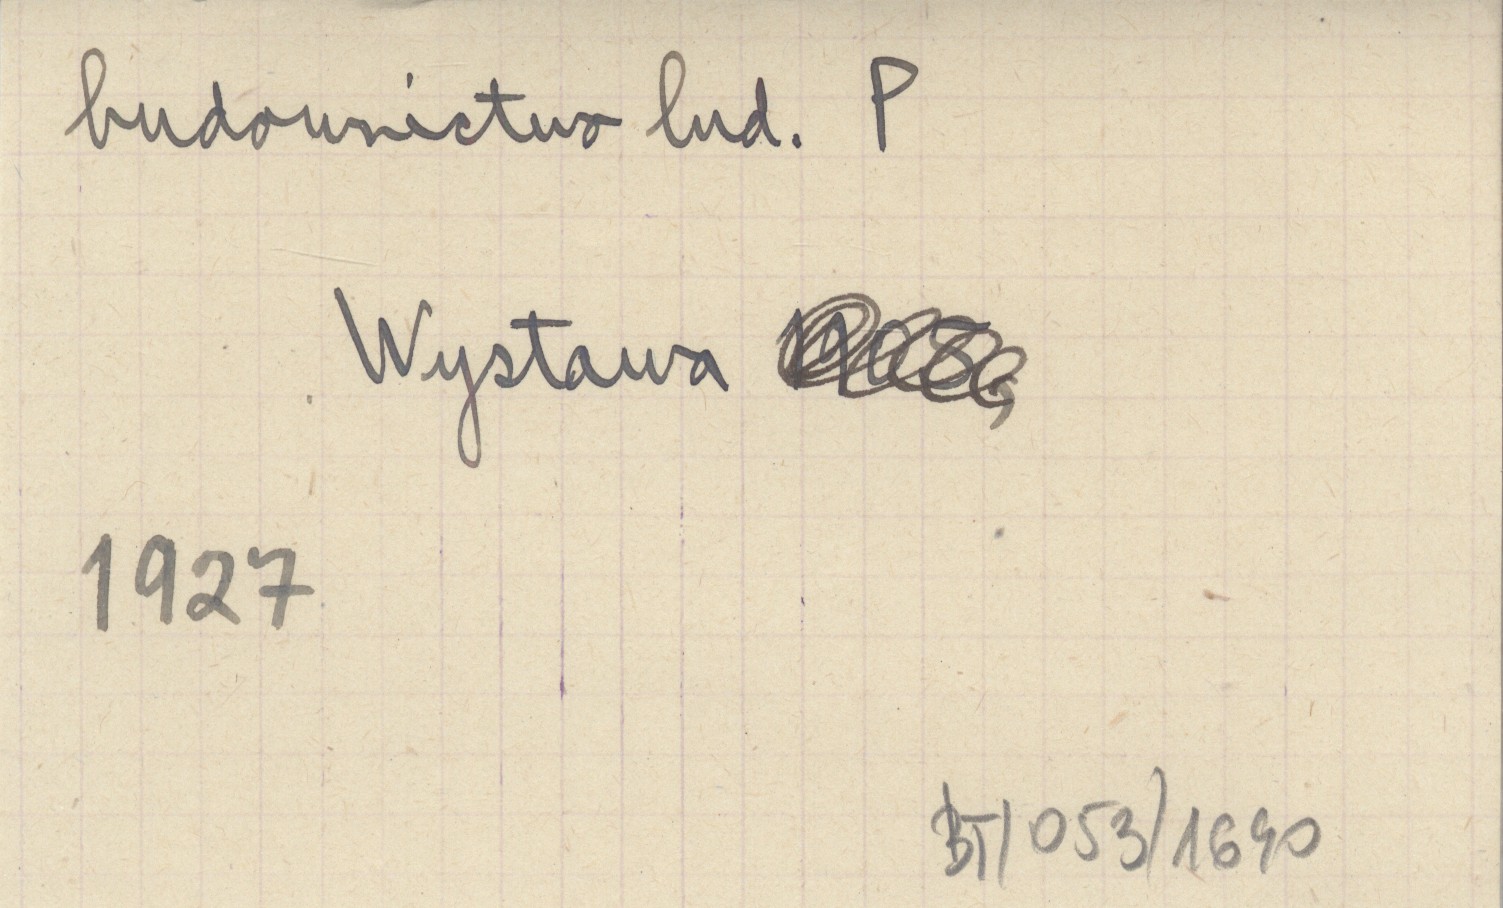 budownictwo lud. P
Wystawa
1927
BT/053/1690